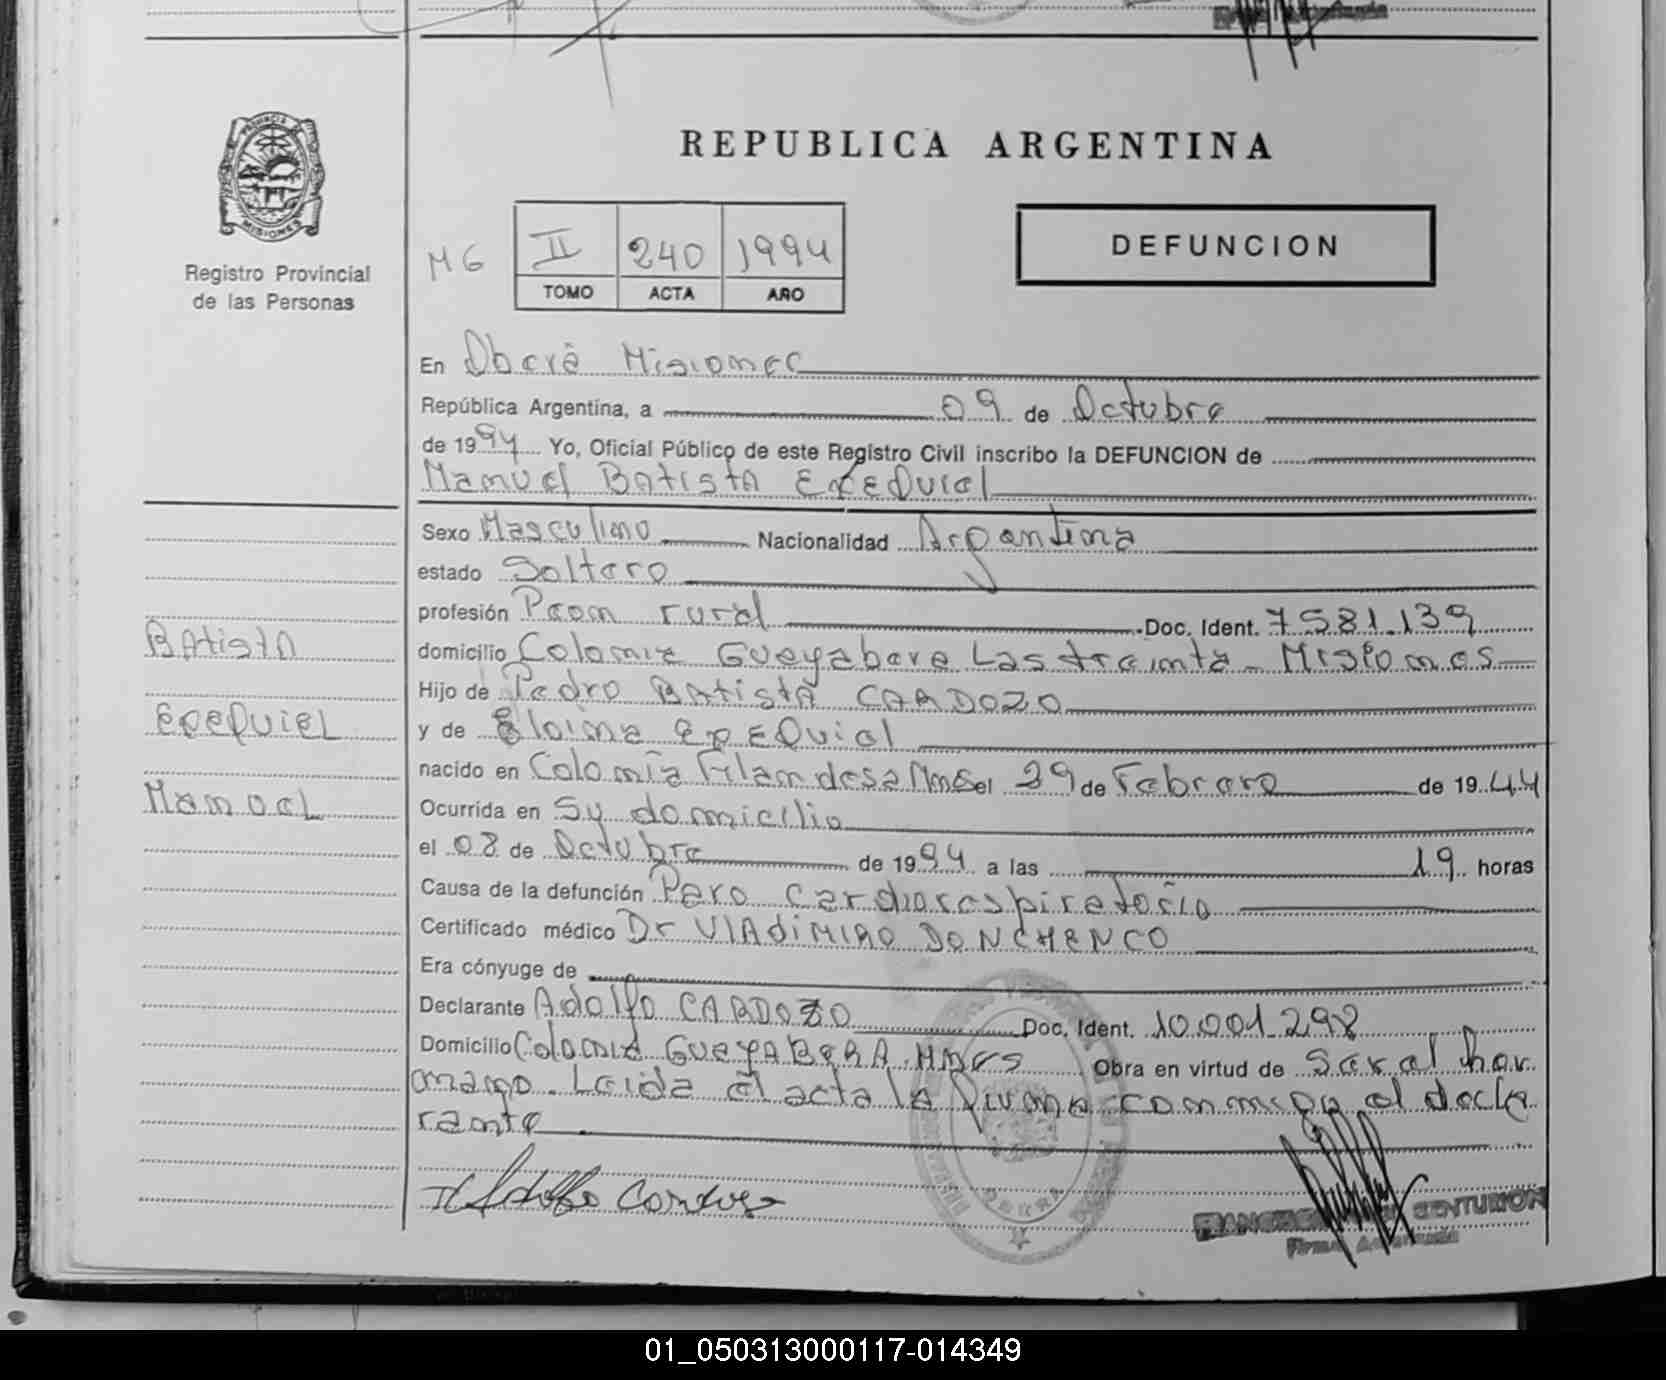 REPUBLICA ARGENTINA
PROVINCIA DE
MISIONES
Registro Provincial
de las Personas
MG
II 240 1994
TOMO ACTA AÑO
DEFUNCION
En Oberá Misiones
República Argentina, a 09 de Octubre
de 1994 Yo, Oficial Público de este Registro Civil inscribo la DEFUNCION de
Manuel BATistA
Sexo Masculino Nacionalidad Argentina
estado Soltero
profesión Peon rural Doc. Ident. 7581.139
domicilio Colonia Gueyabera Las treinta - Misiones
Hijo de Pedro BATistA CARDOZO
y de Eloina
nacido en Colonia Filandesa Mnes el 29 de Febrero de 1944
Ocurrida en Su domicilio
el 08 de Octubre de 1994 a las 19 horas
Causa de la defunción Paro cardiorespiretorio
Certificado médico Dr VlAdiMIRO DONCHENCO
Era cónyuge de
Declarante Adolfo CARDOZO Doc. Ident. 10.001.298
Domicilio Colonia GUEYABERA. Mnes Obra en virtud de Ser el her
mano. Leida el acta la firma conmigo el decla
rante
BAtistA
EceQuiEL
Manuel
Adolfo Cardozo
CENTURION
Firma Autorizada
OBERA
01_050313000117-014349